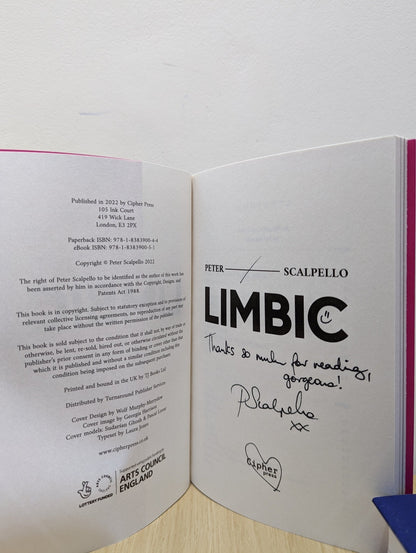 Published in 2022 by Cipher Press
105 Ink Court
419 Wick Lane
London, E3 2PX
Paperback ISBN: 978-1-8383900-4-4
eBook ISBN: 978-1-8383900-5-1
Copyright © Peter Scalpello 2022
The right of Peter Scalpello to be identified as the author of this work has
been asserted by him in accordance with the Copyright, Designs, and
Patents Act 1988.
This book is in copyright. Subject to statutory exception and to provisions of
relevant collective licensing agreements, no reproduction of any part may
take place without the written permission of the publisher.
This book is sold subject to the condition that it shall not, by way of trade or
otherwise, be lent, re-sold, hired out, or otherwise circulated without the
publisher's prior consent in any form of binding or cover other than that in
which it is published and without a similar condition including this
condition being imposed on the subsequent purchaser.
Printed and bound in the UK by TJ Books Ltd
Distributed by Turnaround Publisher Services
Cover Design by Wolf Murphy-Merrydew
Cover image by Georgie
Cover models: Sudarlan Ghosh & David
Typeset by Laura Jones
www.cipherpress.co.uk
LOTTERY FUNDED
Supported using public funding by
ARTS COUNCIL
ENGLAND
PETER SCALPELLO
LIMBIC
Thanks so much for reading,
gorgeous!
PScalpello
xx
Cipher
press